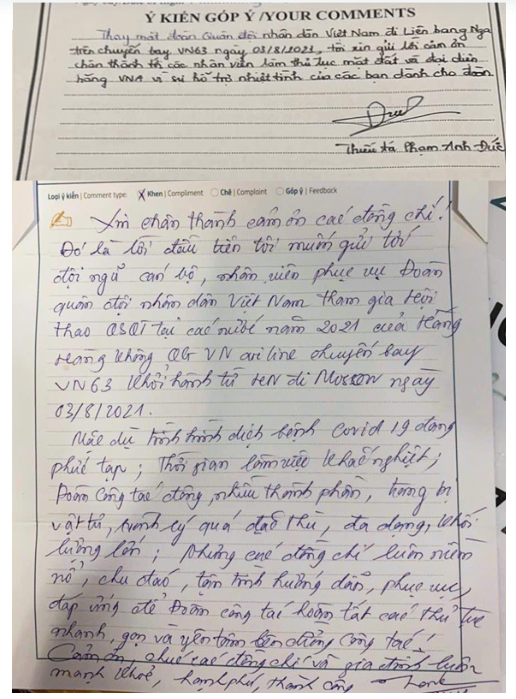 Ý KIẾN GÓP Ý /YOUR COMMENTS
Thay mặt đoàn Quân đội nhân dân Việt Nam đi Liên bang Nga
trên chuyến bay VN63 ngày 03/8/2021, tôi xin gửi lời cảm ơn
chân thành tới các nhân viên làm thủ tục mặt đất và đại diện
hãng VNA vì sự hỗ trợ nhiệt tình của các bạn dành cho đoàn
Thiếu tá Phạm Anh Đức
Loại ý kiến | Comment type X Khen | Compliment Chê | Complaint Góp ý | Feedback
Xin chân thành cảm ơn các đồng chí!
Đó là lời đầu tiên tôi muốn gửi tới
đội ngũ cán bộ, nhân viên phục vụ Đoàn
quân đội nhân dân Việt Nam tham gia Hội
thao QSQT tại các nước năm 2021 của Hãng
Hàng không QG VN airline chuyến bay
VN63 khởi hành từ HN đi Moscow ngày
03/8/2021.
Mặc dù tình hình dịch bệnh Covid 19 đang
phức tạp; Thời gian làm việc khắc nghiệt;
Đoàn công tác đông, nhiều thành phần, trang bị
vật tư, hành lý quá đặc thù, đa dạng, khối
lượng lớn; nhưng các đồng chí luôn niềm
nở, chu đáo, tận tình hướng dẫn, phục vụ,
đáp ứng để Đoàn công tác hoàn tất các thủ tục
nhanh, gọn và yên tâm lên đường công tác!
Cảm ơn, chúc các đồng chí và gia đình luôn
mạnh khoẻ, hạnh phúc, thành công